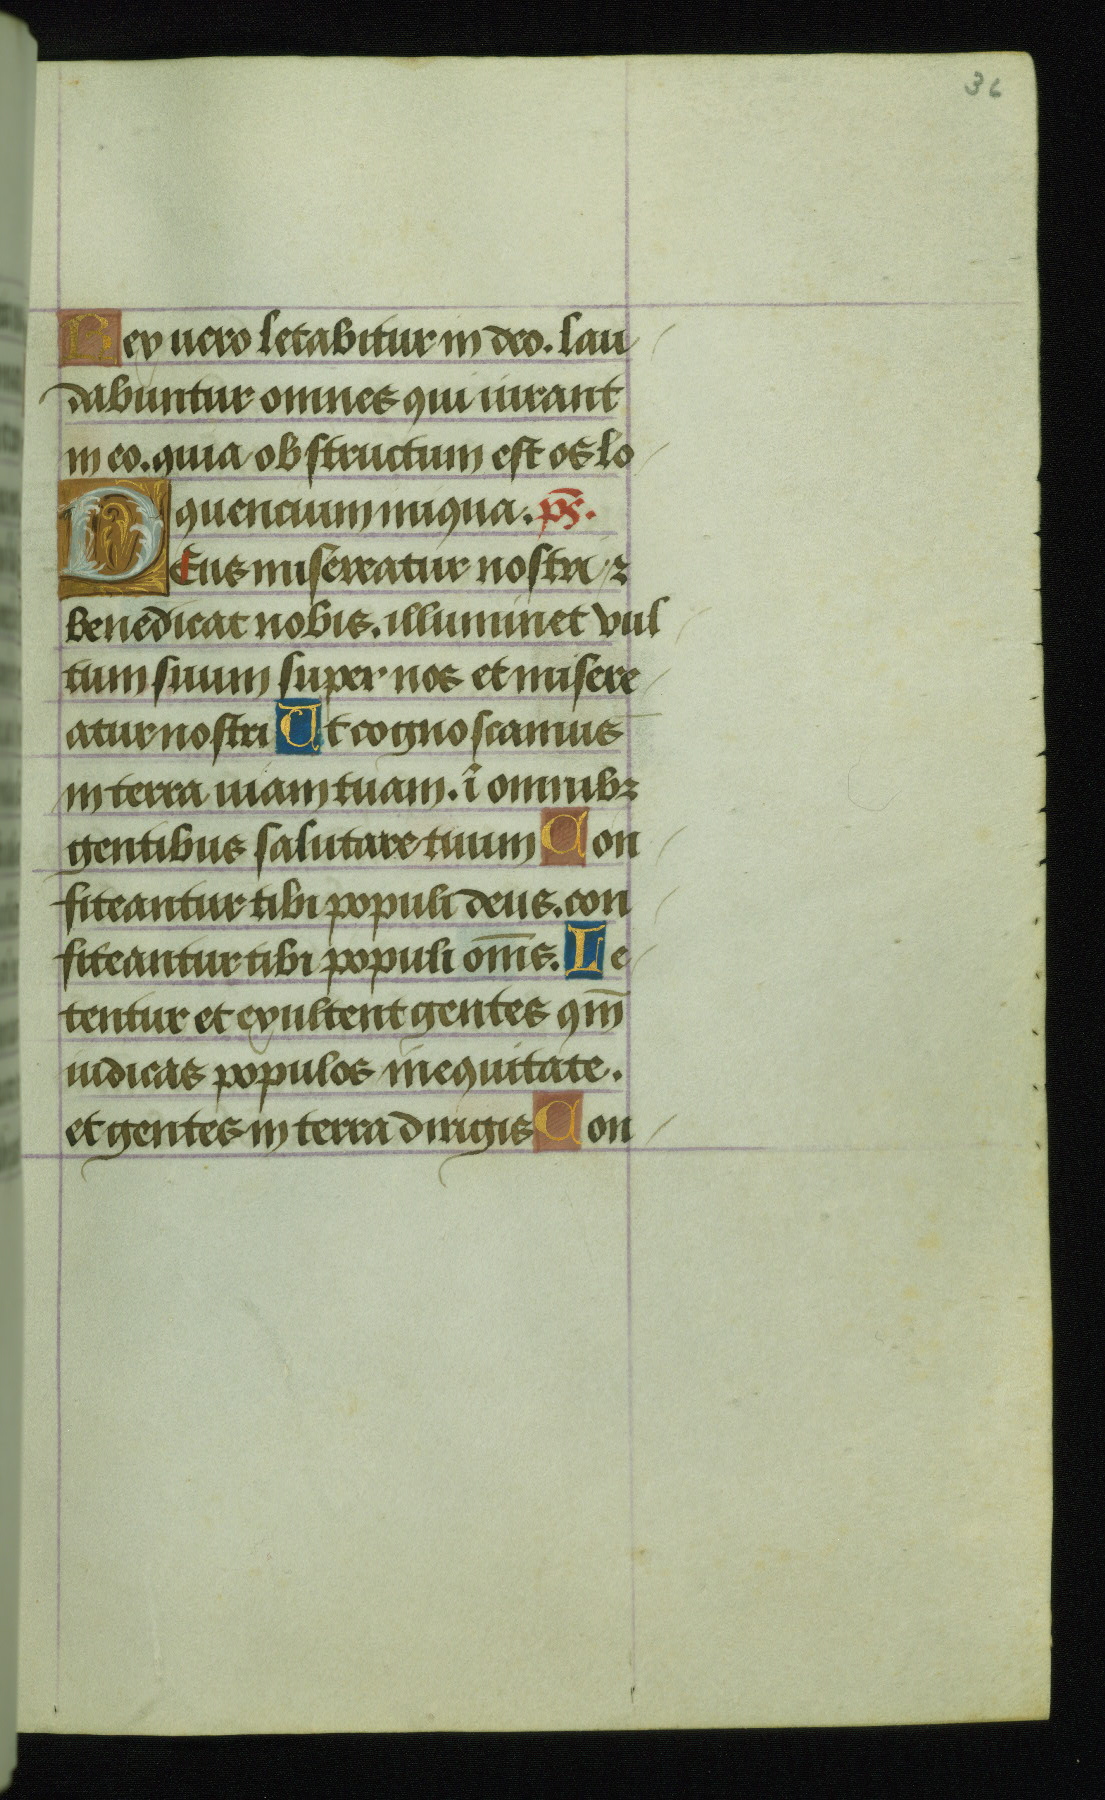 36
Rex uero letabitur in deo. lau
dabuntur omnes qui iurant
in eo. quia obstructum est os lo
quencium iniqua. ps̄.
Deus misereatur nostri ꝛ
benedicat nobis. illuminet vul
tum suum super nos et misere
atur nostri Ut cognoscamus
in terra uiam tuam. ī omnibꝫ
gentibus salutare tuum Con
fiteantur tibi populi deus. con
fiteantur tibi populi om̄s. Le
tentur et exultent gentes qm̄
iudicas populos in equitate.
et gentes in terra dirigis Con